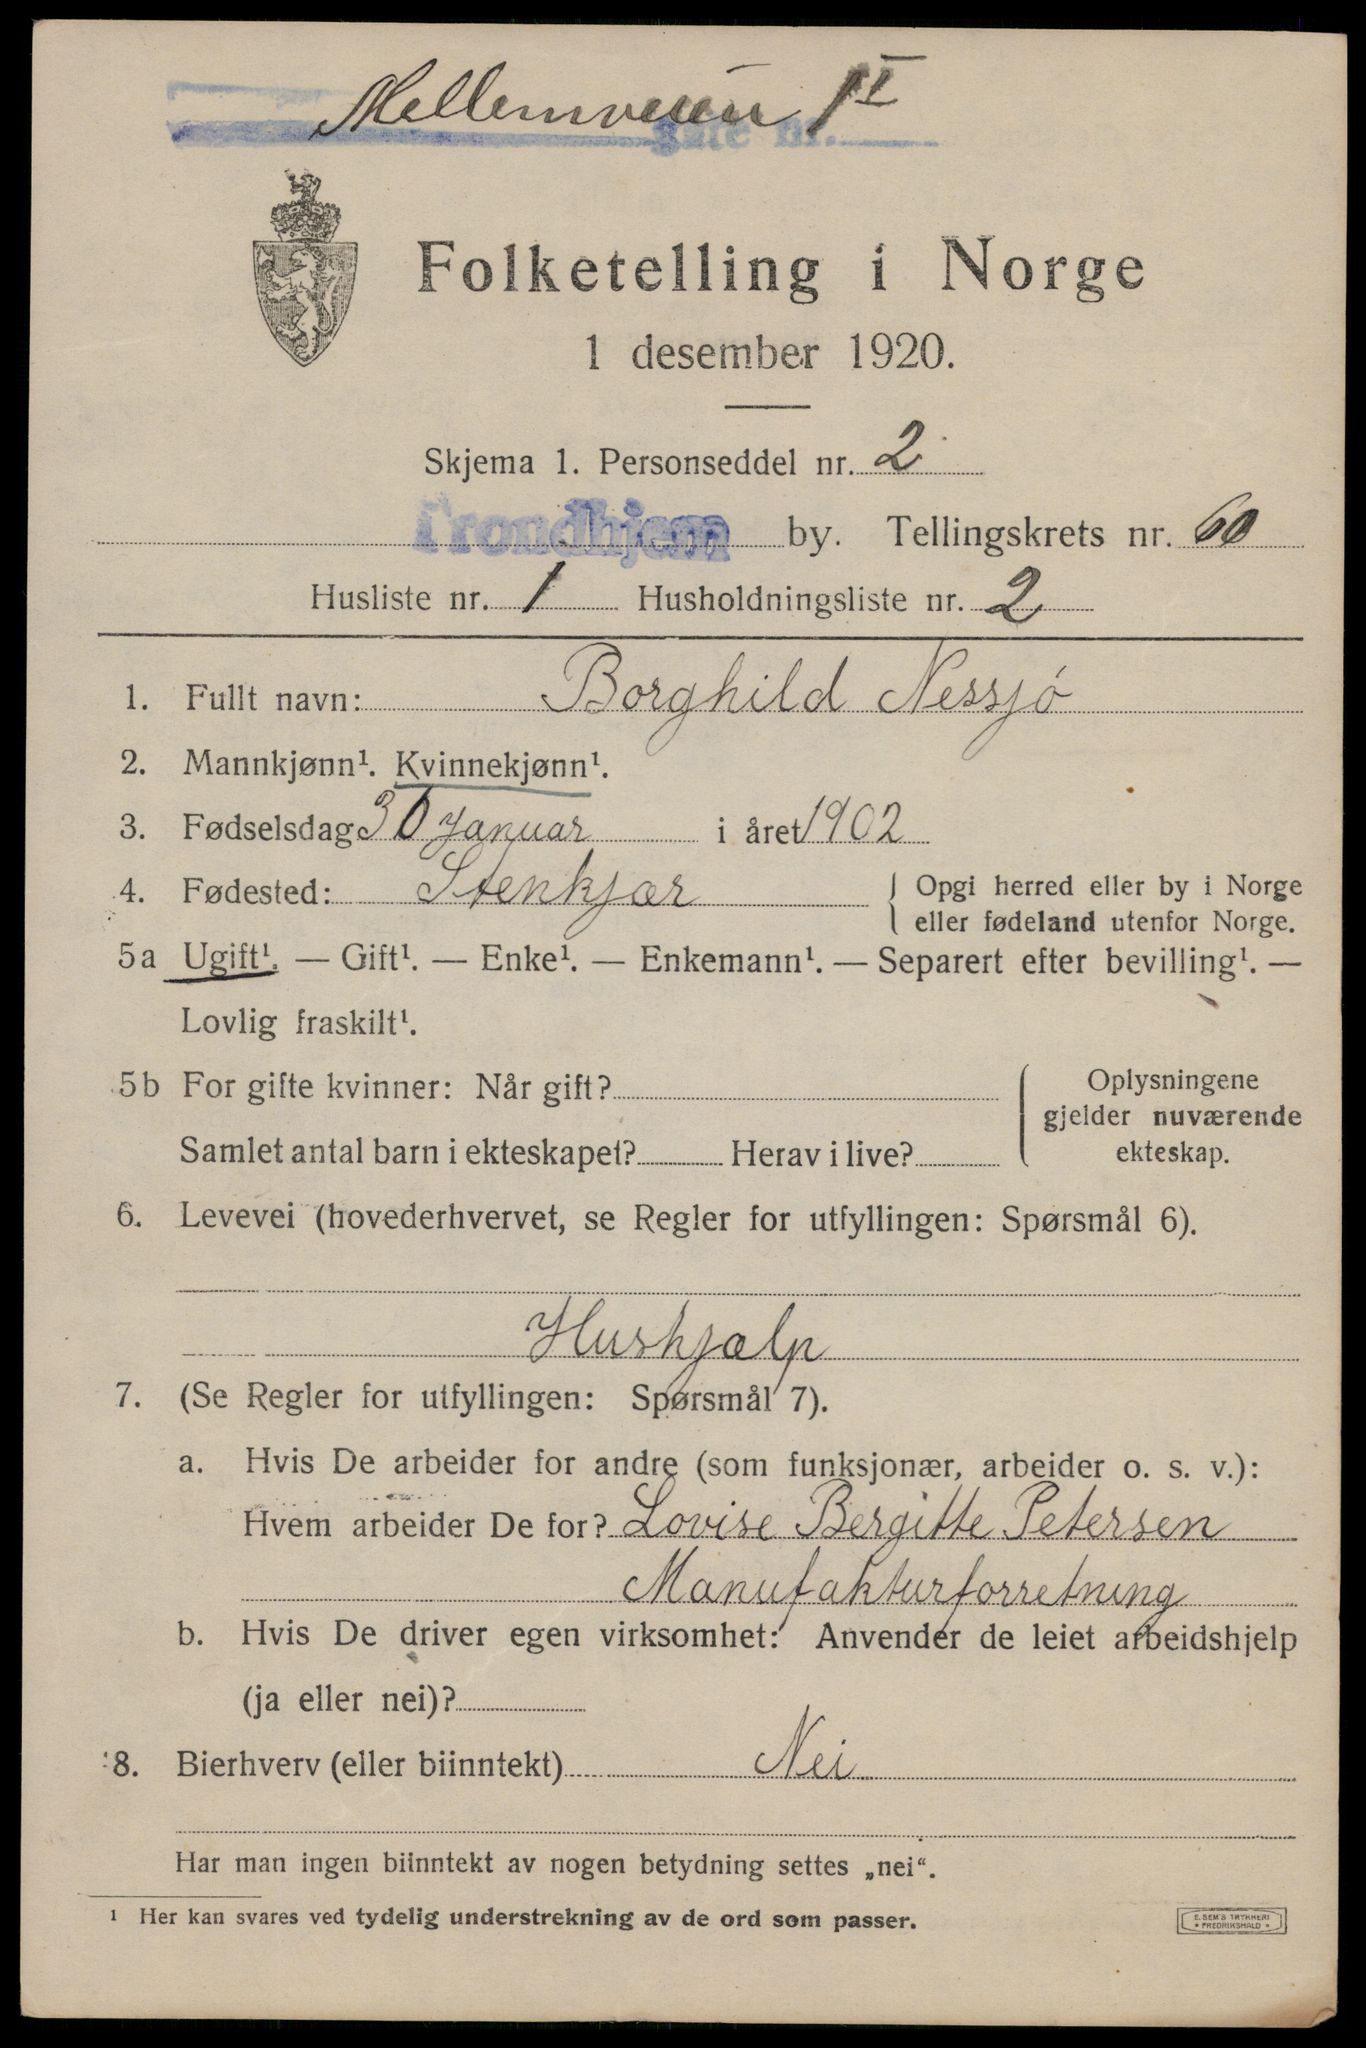 Mellemveien 1 I
gate nr.
Folketelling i Norge
1 desember 1920.
Skjema 1. Personseddel nr. 2
Trondhjem by. Tellingskrets nr. 60
Husliste nr. 1 Husholdningsliste nr. 2
1. Fullt navn: Borghild Nessjö
2. Mannkjønn¹. Kvinnekjønn¹.
3. Fødselsdag 30 januar i året 1902
4. Fødested: Stenkjær { Opgi herred eller by i Norge
eller fødeland utenfor Norge.
5a Ugift¹. — Gift¹. — Enke¹. — Enkemann¹. — Separert efter bevilling¹. —
Lovlig fraskilt¹.
5b For gifte kvinner: Når gift?
Samlet antal barn i ekteskapet? Herav i live?
Oplysningene
gjelder nuværende
ekteskap.
6. Levevei (hovederhvervet, se Regler for utfyllingen: Spørsmål 6).
Hushjælp
7. (Se Regler for utfyllingen: Spørsmål 7).
a. Hvis De arbeider for andre (som funksjonær, arbeider o. s. v.):
Hvem arbeider De for? Lovise Bergitte Petersen
Manufakturforretning
b. Hvis De driver egen virksomhet: Anvender de leiet arbeidshjelp
(ja eller nei)?
8. Bierhverv (eller biinntekt) Nei
Har man ingen biinntekt av nogen betydning settes „nei“.
¹ Her kan svares ved tydelig understrekning av de ord som passer.
E. SEM'S TRYKKERI
FREDRIKSHALD